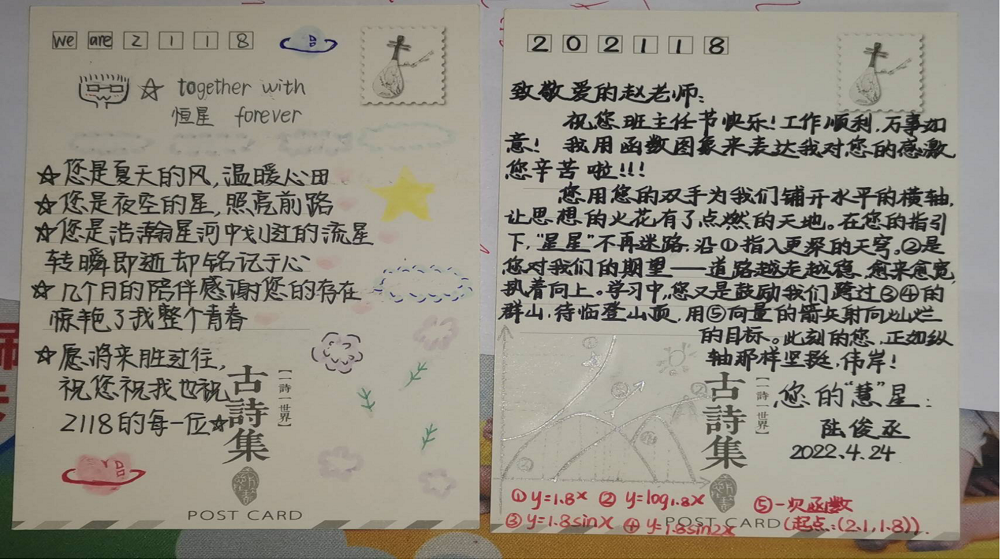 we are 2 1 1 8
together with
恒星 forever
☆您是夏天的风,温暖心田
☆您是夜空的星,照亮前路
☆您是浩瀚星河中划过的流星
转瞬即逝却铭记于心
☆几个月的陪伴感谢您的存在
惊艳了我整个青春
☆愿将来胜过往,
祝您祝我也祝
2118的每一位☆
古詩集
【一詩一世界】
POST CARD
2 0 2 1 1 8
致敬爱的赵老师:
祝您班主任节快乐!工作顺利,万事如
意! 我用函数图象来表达我对您的感激
您辛苦啦!!!
您用您的双手为我们铺开水平的横轴,
让思想的火花有了点燃的天地。在您的指引
下,“星星”不再迷路,沿①指入更深的天穹,②是
您对我们的期望——道路越走越稳,愈来愈宽,
执着向上。学习中,您又是鼓励我们跨过③④的
群山,待临登山顶,用⑤向量的箭矢射向灿烂
的目标。此刻的您,正如纵
轴那样坚挺,伟岸!
古詩集
【一詩一世界】
您的“慧”星:
陆俊丞
2022.4.24
①y=1.8ˣ ②y=log1.8x ⑤一次函数
③y=1.8sinx ④y=1.8sin2x (起点:(2.1,1.8)).
POST CARD